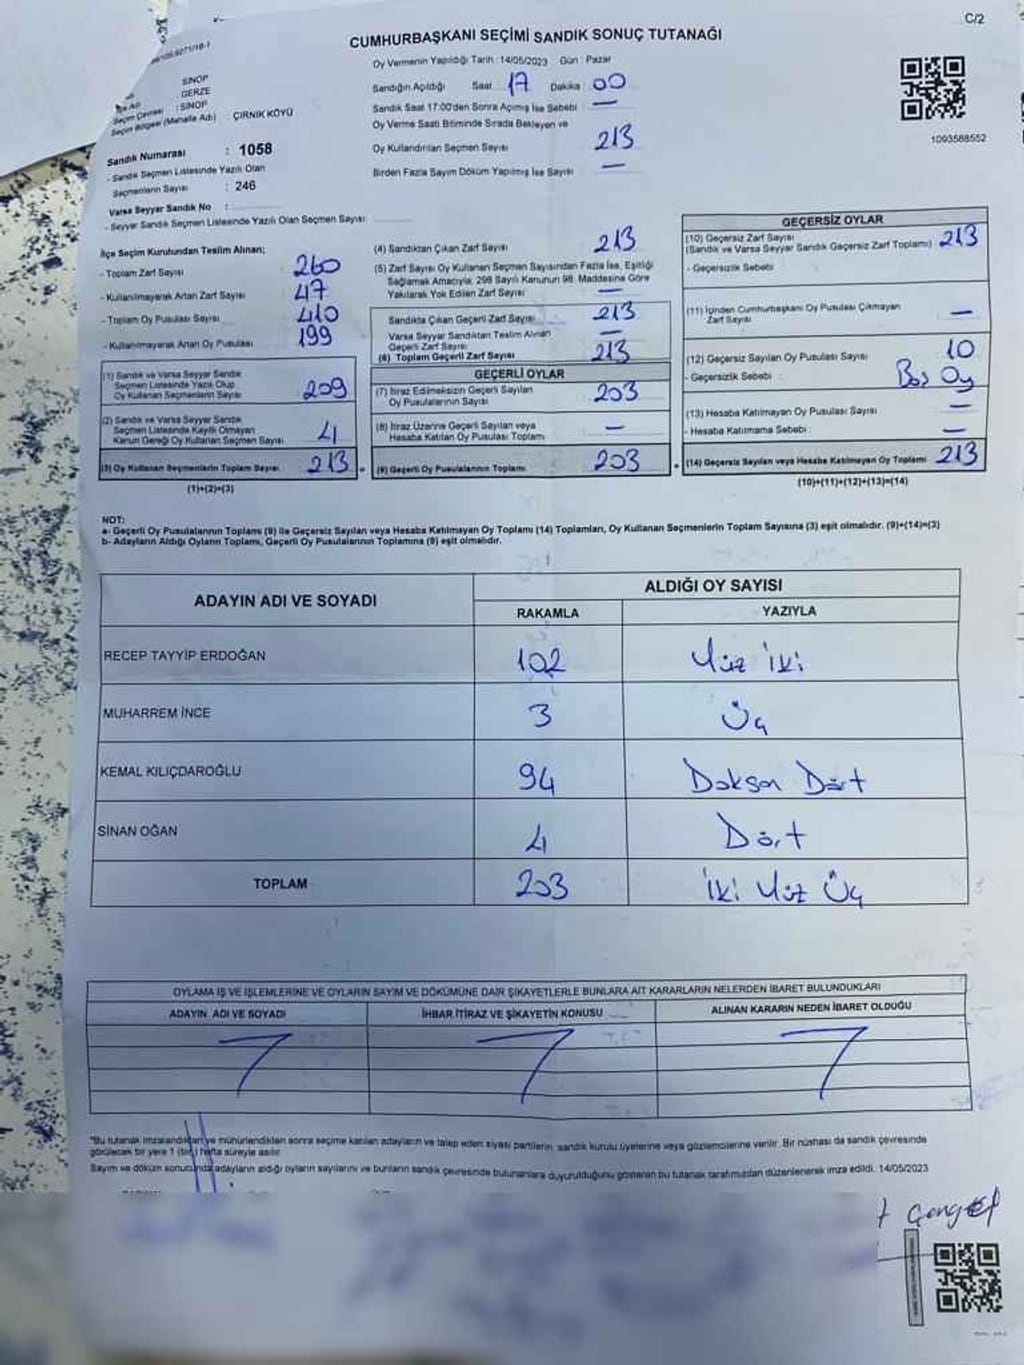 C/2
CUMHURBAŞKANI SEÇİMİ SANDIK SONUÇ TUTANAĞI
Oy Vermenin Yapıldığı Tarih :14/05/2023 Gün : Pazar
Sandığın Açıldığı Saat 17 Dakika : 00
Sandık Saat 17:00'dan Sonra Açmış İse Sebebi : —
Oy Verme Saati Bitiminde Sırada Bekleyen ve
Oy Kullandırılan Seçmen Sayısı 213
Birden Fazla Sayım Döküm Yapılmış İse Sayısı : —
1093588552
SİNOP
GERZE
Seçim Çevresi : SİNOP
Seçim Bölgesi (Mahalle Adı) : ÇIRNIK KÖYÜ
Sandık Numarası : 1058
- Sandık Seçmen Listesinde Yazılı Olan
Seçmenlerin Sayısı : 246
Varsa Seyyar Sandık No :
- Seyyar Sandık Seçmen Listesinde Yazılı Olan Seçmen Sayısı:
İlçe Seçim Kurulundan Teslim Alınan;
- Toplam Zarf Sayısı : 260
- Kullanılmayarak Artan Zarf Sayısı : 47
- Toplam Oy Pusulası Sayısı : 410
- Kullanılmayarak Artan Oy Pusulası : 199
(1) Sandık ve Varsa Seyyar Sandık
Seçmen Listesinde Yazılı Olup
Oy Kullanan Seçmenlerin Sayısı 209
(2) Sandık ve Varsa Seyyar Sandık
Seçmen Listesinde Kayıtlı Olmayan
Kanun Gereği Oy Kullanan Seçmen Sayısı 4
(3) Oy Kullanan Seçmenlerin Toplam Sayısı 213
(1)+(2)=(3)
(4) Sandıktan Çıkan Zarf Sayısı 213
(5) Zarf Sayısı Oy Kullanan Seçmen Sayısından Fazla İse, Eşitliği
Sağlamak Amacıyla; 298 Sayılı Kanunun 98. Maddesine Göre
Yakılarak Yok Edilen Zarf Sayısı —
Sandıkta Çıkan Geçerli Zarf Sayısı 213
Varsa Seyyar Sandıktan Teslim Alınan
Geçerli Zarf Sayısı —
(6) Toplam Geçerli Zarf Sayısı 213
GEÇERLİ OYLAR
(7) İtiraz Edilmeksizin Geçerli Sayılan
Oy Pusulalarının Sayısı 203
(8) İtiraz Üzerine Geçerli Sayılan veya
Hesaba Katılan Oy Pusulası Toplamı —
(9) Geçerli Oy Pusulalarının Toplamı 203
GEÇERSİZ OYLAR
(10) Geçersiz Zarf Sayısı
(Sandık ve Varsa Seyyar Sandık Geçersiz Zarf Toplamı) 213
- Geçersizlik Sebebi :
(11) İçinden Cumhurbaşkanı Oy Pusulası Çıkmayan
Zarf Sayısı —
(12) Geçersiz Sayılan Oy Pusulası Sayısı 10
- Geçersizlik Sebebi : Boş Oy
(13) Hesaba Katılmayan Oy Pusulası Sayısı —
- Hesaba Katılmama Sebebi : —
(14) Geçersiz Sayılan veya Hesaba Katılmayan Oy Toplamı 213
(10)+(11)+(12)+(13)=(14)
NOT:
a- Geçerli Oy Pusulalarının Toplamı (9) ile Geçersiz Sayılan veya Hesaba Katılmayan Oy Toplamı (14) Toplamları, Oy Kullanan Seçmenlerin Toplam Sayısına (3) eşit olmalıdır. (9)+(14)=(3)
b- Adayların Aldığı Oyların Toplamı, Geçerli Oy Pusulalarının Toplamına (9) eşit olmalıdır.
ADAYIN ADI VE SOYADI ALDIĞI OY SAYISI
RAKAMLA YAZIYLA
RECEP TAYYİP ERDOĞAN 102 Yüz iki
MUHARREM İNCE 3 Üç
KEMAL KILIÇDAROĞLU 94 Doksan Dört
SİNAN OĞAN 4 Dört
TOPLAM 203 iki Yüz Üç
OYLAMA İŞ VE İŞLEMLERİNE VE OYLARIN SAYIM VE DÖKÜMÜNE DAİR ŞİKAYETLERLE BUNLARA AİT KARARLARIN NELERDEN İBARET BULUNDUKLARI
ADAYIN ADI VE SOYADI İHBAR İTİRAZ VE ŞİKAYETİN KONUSU ALINAN KARARIN NEDEN İBARET OLDUĞU
"Bu tutanak imzalandıktan ve mühürlendikten sonra seçime katılan adayların ve talep eden siyasi partilerin, sandık kurulu üyelerine veya gözlemcilerine verilir. Bir nüshası da sandık çevresinde
görülecek bir yere 1 (bir) hafta süreyle asılır.
Sayım ve döküm sonucunda adayların aldığı oyların sayılarını ve bunların sandık çevresinde bulunanlara duyurulduğunu gösteren bu tutanak tarafımızdan düzenlenerek imza edildi. 14/05/2023